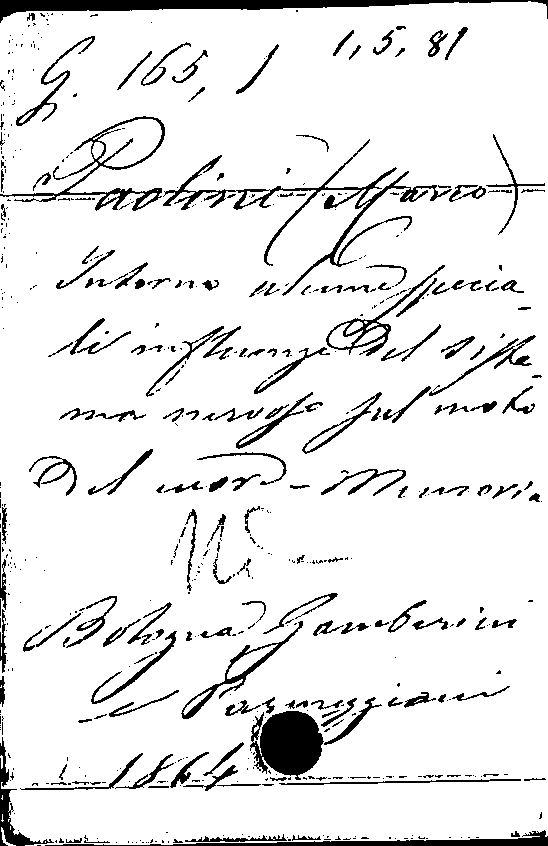 G. 165, 1 1, 5, 81
Paolini (Marco)
Intorno alcune specia-
li influenze del siste-
ma nervoso sul moto
del cuore - Memoria
Bologna Gamberini
e Parmeggiani
1864